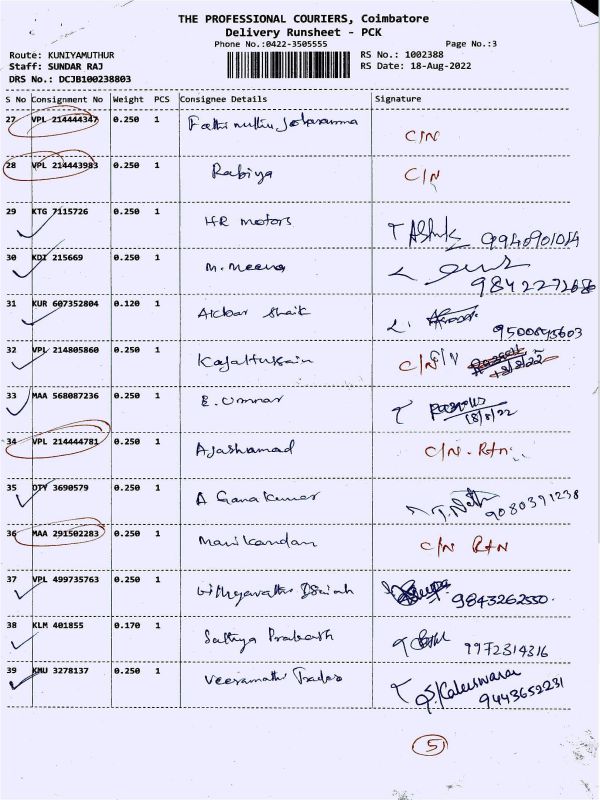 THE PROFESSIONAL COURIERS, Coimbatore
Delivery Runsheet - PCK
Phone No.:0422-3505555 Page No.:3
Route: KUNIYAMUTHUR RS No.: 1002388
Staff: SUNDAR RAJ RS Date: 18-Aug-2022
DRS No.: DCJB100238803
S No Consignment No Weight PCS Consignee Details Signature
27 VPL 214444347 0.250 1
C/N
28 VPL 214443983 0.250 1 Rabiya C/N
29 KTG 7115726 0.250 1 HR Motors
30 KDI 215669 0.250 1 M. Meena
9842272686
31 KUR 607352804 0.120 1 Akbar Shaik
32 VPL 214805860 0.250 1 Kajahussain C/N
18/8/22
33 MAA 568087236 0.250 1 E. Ummar
18/8/22
34 VPL 214444781 0.250 1 C/N. Rtn.
35 DTY 3690579 0.250 1 A Ganakumar 9080391238
36 MAA 291502283 0.250 1 Manikandan C/N Rtn
37 VPL 499735763 0.250 1 9843262550.
38 KLM 401855 0.170 1 Sathya Prakash 9972314316
39 KMU 3278137 0.250 1 Veeramathi Traders S. Kaleswaran
9443652231
5